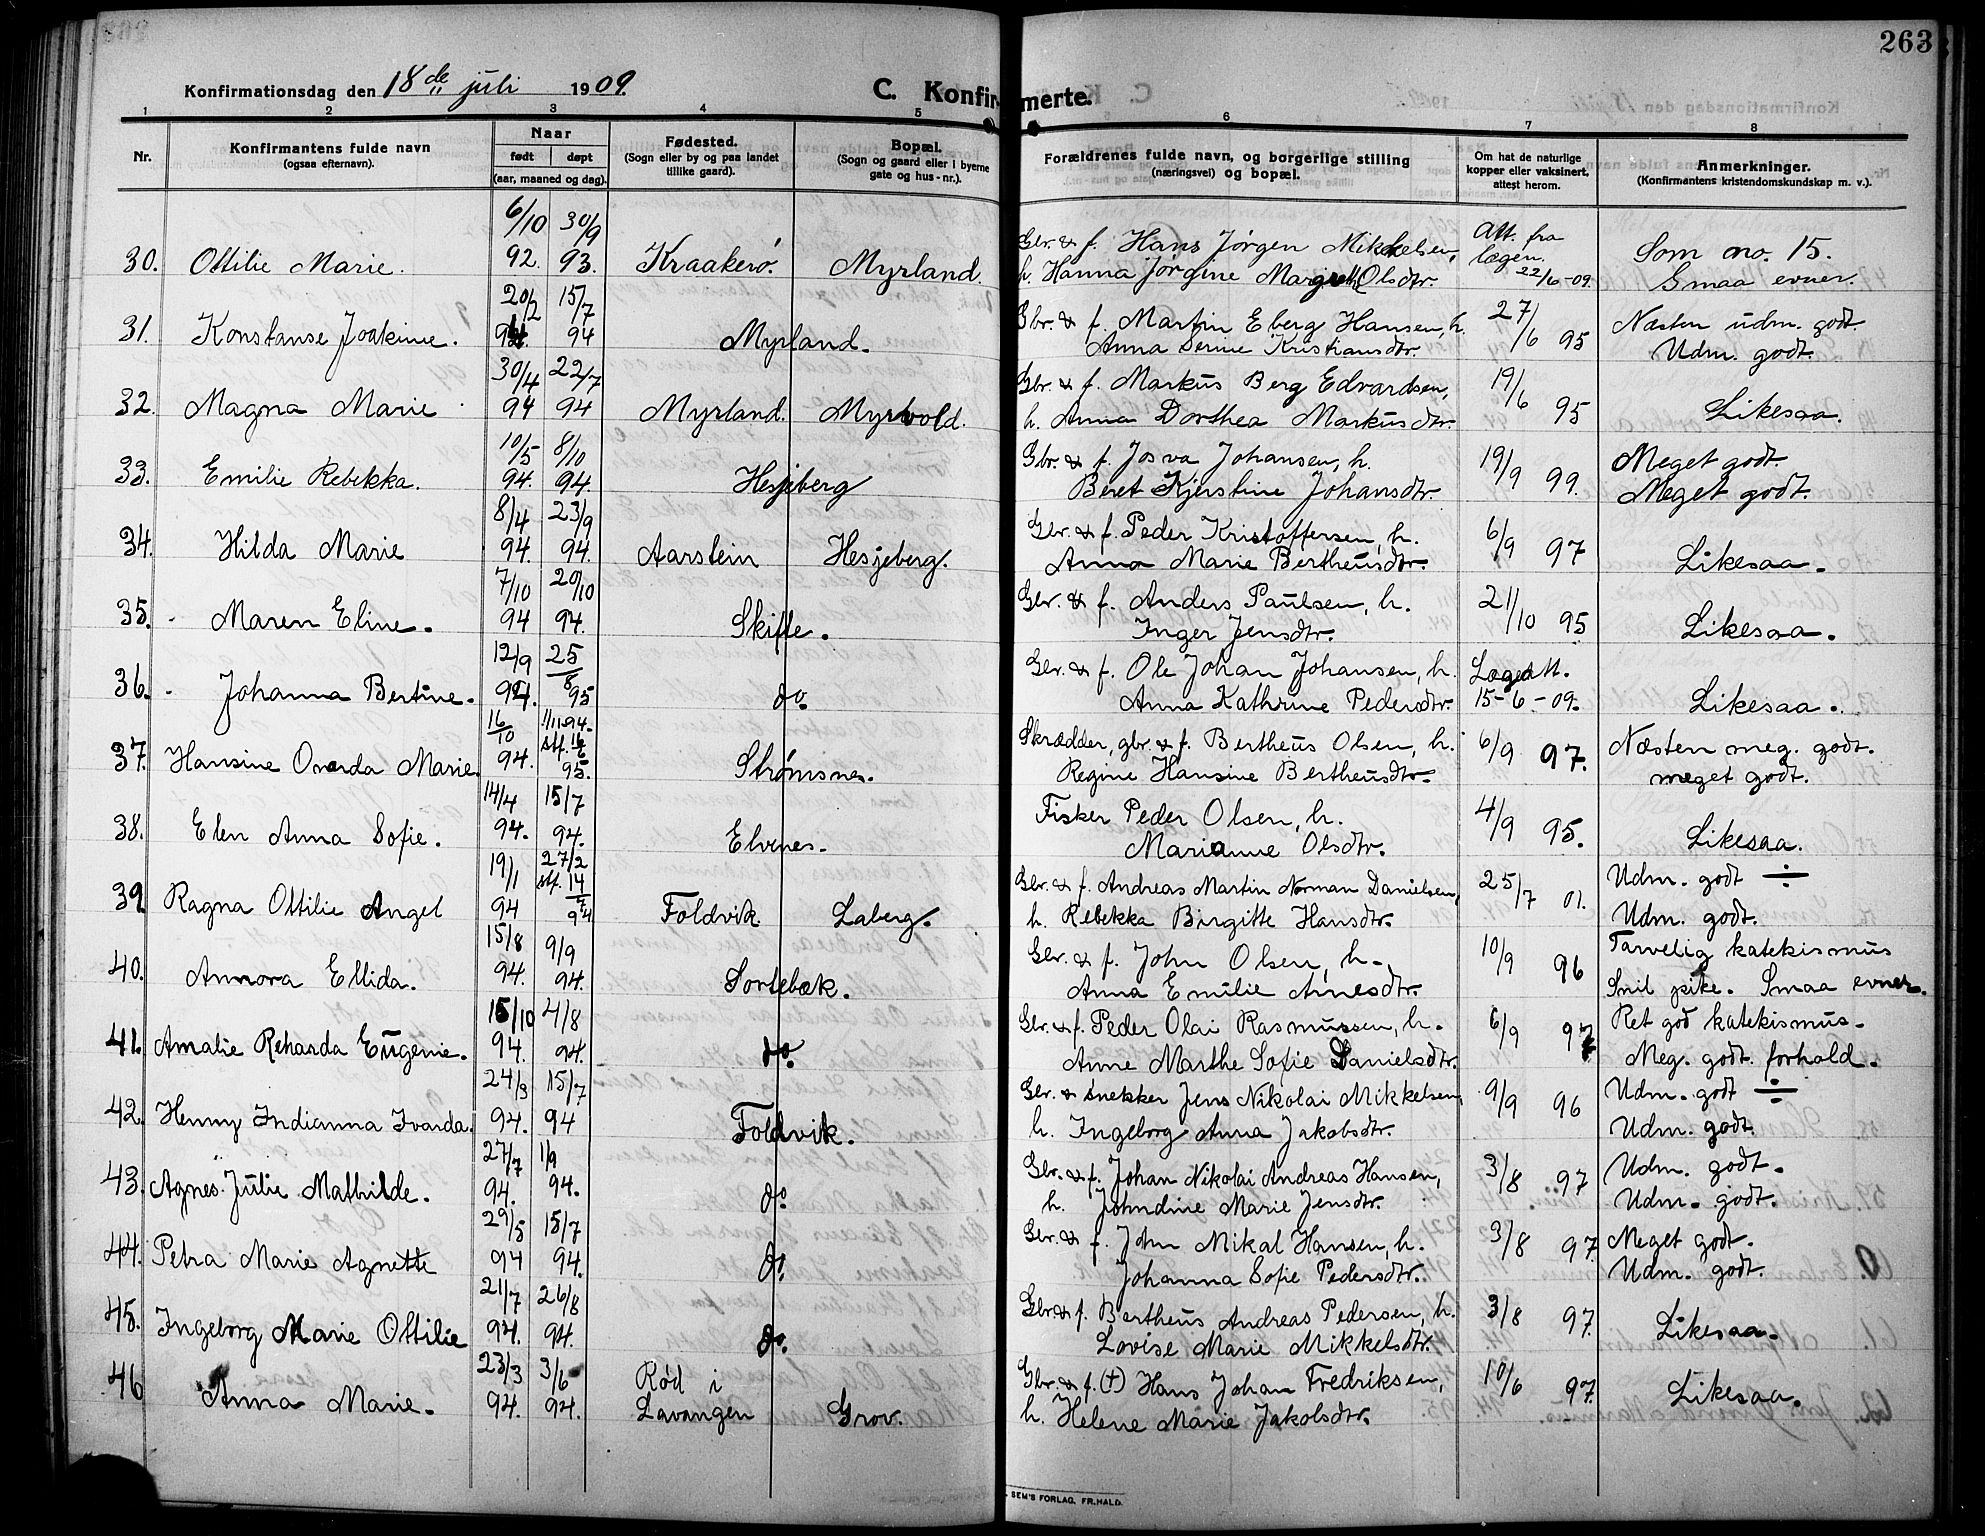 263
Konfirmationsdag den 18de juli 1909.
C. Konfirmerte.
1 2 3 4 5 6 7 8
Nr.
Konfirmantens fulde navn
(ogsaa efternavn).
Naar
født døpt
(aar, maaned og dag).
Fødested.
(Sogn eller by og paa landet
tillike gaard).
Bopæl.
(Sogn og gaard eller i byerne
gate og hus-nr.).
Forældrenes fulde navn, og borgerlige stilling
(næringsvei) og bopæl.
Om hat de naturlige
kopper eller vaksinert,
attest herom.
Anmerkninger.
(Konfirmantens kristendomskundskap m. v.).
30. Ottilie Marie. 6/10 92. 30/9 93. Kraakerø. Myrland.
Gbr. & f. Hans Jørgen Mikkelsen,
h. Hanna Jørgine Margrethe Olsdtr.
Att. fra
lægen.
22/6-09.
Som no. 15.
Smaa evner.
31. Konstanse Joakime. 20/2 94. 15/7 94 Myrland.
Gbr. & f. Martin Eberg Hansen, h.
Anna Serine Kristiansdtr.
27/6 95
Næsten udm. godt.
Udm. godt.
32. Magna Marie 30/4 94 22/7 94 Myrland. Myrvold.
Gbr. & f. Markus Berg Edvardsen,
h. Anna Dorthea Markusdtr.
19/6 95
Likesaa.
33. Emilie Rebekka. 10/5 94. 8/10 94. Hesjeberg
Gbr. & f. Josva Johansen, h.
Beret Kjerstine Johansdtr.
19/9 99.
Meget godt.
Meget godt.
34. Hilda Marie 8/4 94. 23/9 94. Aarstein Hesjeberg.
Gbr. & f. Peder Kristoffersen, h.
Anna Marie Bertheusdtr.
6/9 97
Likesaa.
35. Maren Eline. 7/10 94 20/10 94. Skifte.
Gbr. & f. Anders Paulsen, h.
Inger Jensdtr.
21/10 95
Likesaa.
36. Johanna Bertine. 12/9 94. 25/8 95 do.
Gbr. & f. Ole Johan Johansen, h.
Anna Kathrine Pedersdtr.
Lægeatt.
15-6-09.
Likesaa.
37. Hansine Ovarda Marie. 16/10 94. 11/11 94. stf. 16/6 95. Strømsnes.
Skrædder, gbr. & f. Bertheus Olsen, h.
Regine Hansine Bertheusdtr.
6/9 97.
Næsten meg. godt.
meget godt.
38. Elen Anna Sofie. 14/4 94. 15/7 94. Elvenes.
Fisker Peder Olsen, h.
Marianne Olsdtr.
4/9 95.
Likesaa.
39. Ragna Ottilie Angel 19/1 94 27/2 stf. 14/7 94 Foldvik Laberg.
Gbr. & f. Andreas Martin Norman Danielsen,
h. Rebekka Birgitte Hansdtr.
25/7 01.
Udm. godt ÷
Udm. godt.
40. Annora Ellida. 15/8 94. 9/9 94. Sortebæk.
Gbr. & f. John Olsen, h.
Anna Emilie Arnesdtr.
10/9 96
Tarvelig katekismus
Snil pike. Smaa evner.
41. Amalie Reharda Eugenie. 15/10 94. 4/8 94. do.
Gbr. & f. Peder Olai Rasmussen, h.
Anne Marthe Sofie Danielsdtr.
6/9 97
Ret god katekismus.
Meg. godt. forhold.
42. Henny Indianna Ivarda. 24/3 94. 15/7 94 Foldvik.
Gbr. & snekker Jens Nikolai Mikkelsen,
h. Ingeborg Anna Jakobsdtr.
9/9 96
Udm. godt ÷
Udm. godt.
43. Agnes Julie Mathilde. 27/7 94. 1/9 94. do.
Gbr. & f. Johan Nikolai Andreas Hansen,
h. Johndine Marie Jensdtr.
3/8 97
Udm. godt.
Udm. godt.
44. Petra Marie Agnette 29/5 94 15/7 94. do.
Gbr. & f. John Mikal Hansen, h.
Johanna Sofie Pedersdtr.
3/8 97.
Meget godt.
Udm. godt.
45. Ingeborg Marie Ottilie 21/7 94. 26/8 94. do.
Gbr. & f. Bertheus Andreas Pedersen, h.
Lovise Marie Mikkelsdtr.
3/8 97.
Likesaa.
46 Anna Marie. 23/3 94. 3/6 94. Rød i Lavangen Grov.
Gbr. & f. (†) Hans Johan Fredriksen,
h. Helene Marie Jakobsdtr.
10/6 97.
Likesaa.
SEM'S FORLAG, FR.HALD.